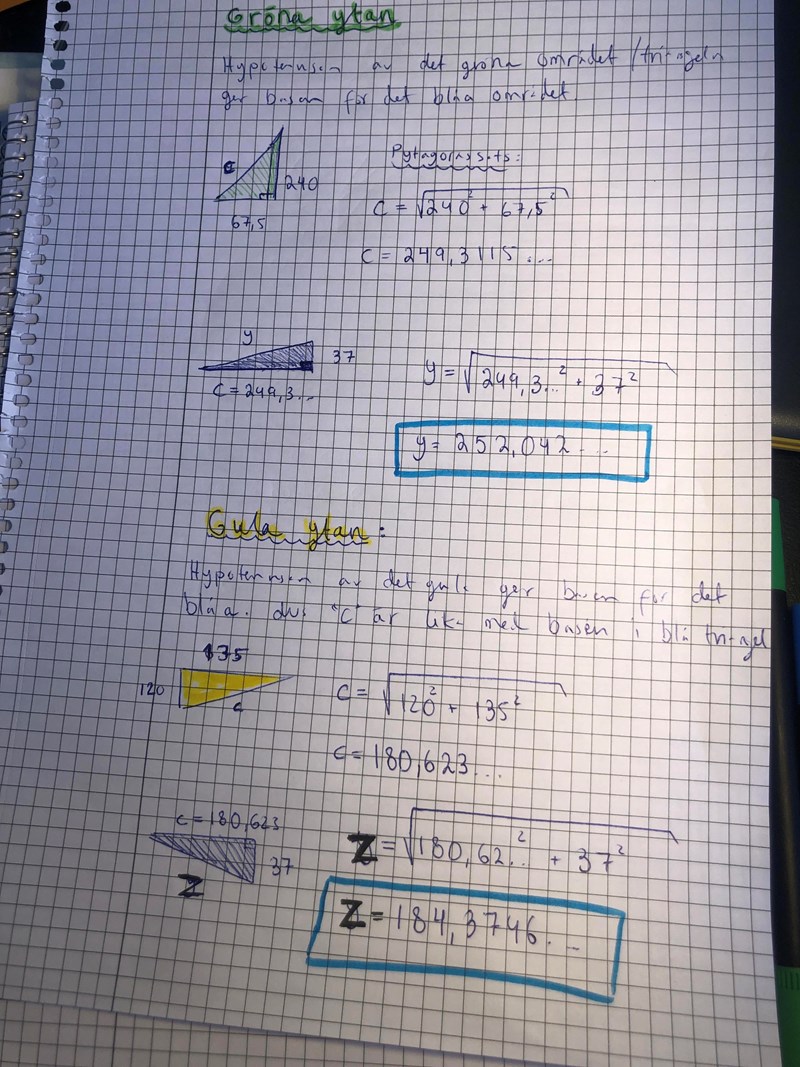 Gröna ytan
Hypotenusen av det gröna området/triangeln
ger basen för det blåa området
Pytagorassats:
c
240
67,5
C = √240² + 67,5²
C = 249,3115...
y
37
C = 249,3...
y = √249,3...² + 37²
y = 252,042...
Gula ytan:
Hypotenusen av det gula ger basen för det
blåa. dvs "C" är lika med basen i blå triangel
135
120
c
C = √120² + 135²
C = 180,623...
C = 180,623
37
Z
Z = √180,62...² + 37²
Z = 184,3746...